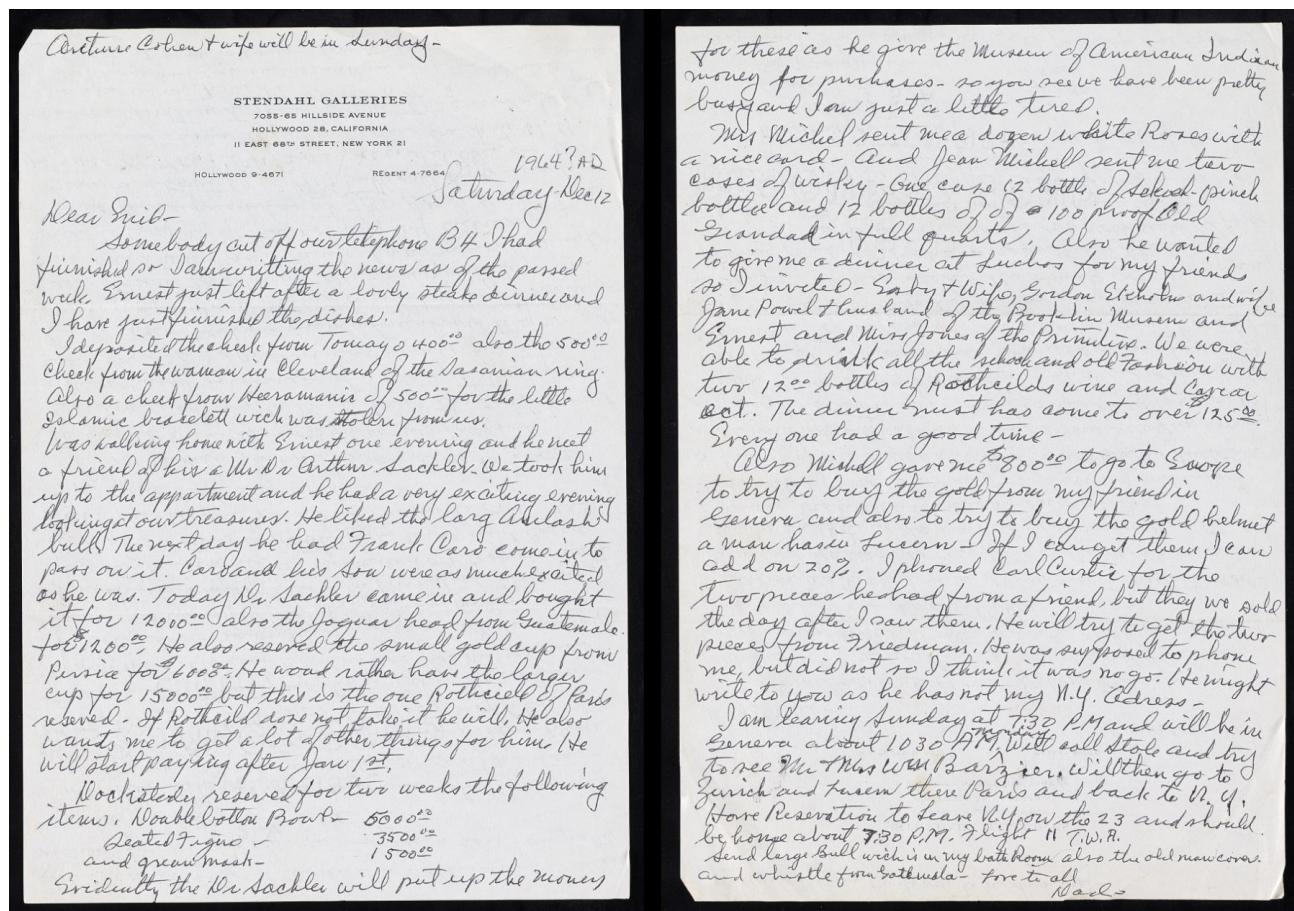 Arthure Cohen + wife will be in Sunday-
STENDAHL GALLERIES
7055-65 HILLSIDE AVENUE
HOLLYWOOD 28, CALIFORNIA
11 EAST 68TH STREET, NEW YORK 21
HOLLYWOOD 9-4671 REGENT 4-7664
1964? AD
Saturday-Dec 12
Dear Enid-
Somebody cut off our teletphone B4 I had
finnished so I am writting the news as of the passed
week. Ernest just left after a lovly steake dinner and
I have just finnished the dishes.
I deposited the check from Tomayo 400.00 also the 500.00
check from the woman in Cleveland of the Sasanian ring.
Also a check from Heeramanic of 500.00 for the little
Islamic bracelett wich was stolen from us.
Was walking home with Ernest one evening and he met
a friend of his a Mr Dr Arthur Sackler. We took him
up to the appartment and he had a very exciting evening
looking at our treasures. He liked the larg Amlash
bull. The next day he had Frank Caro come in to
pass on it. Caro and his son were as much excited
as he was. Today Dr Sackler came in and bought
it for 12000.00 also the Jaguar head from Guatemala
for $1200.00. He also reserved the small gold cup from
Persia for $6000.00. He woud rather have the larger
cup for 15000.00 but this is the one Rothcield of Paris
reserved. If Rothcild dose not take it he will. He also
wants me to get a lot of other things for him. He
will start paying after Jan 1st.
Dockstedy reserved for two weeks the following
items. Double bottom Bowl- 5000.00
Seated Figure - 3500.00
and green mask- 1500.00
Evidently the Dr Sackler will put up the money
for these as he give the Museum of American Indian
money for purchases- so you see we have been pretty
busy and I am just a little tired.
Mrs Michel sent me a dozen white Roses with
a nice card- And Jean Michell sent me two
cases of wisky- One case 12 bottle of pinch
bottle and 12 bottles of of 100 proof Old
Grandad in full quarts. Also he wanted
to give me a dinner at Luchos for my friends
so I invited- Easby + Wife, Gordon Ekholm and wife
Jane Powel + husband of the Brooklin Museum and
Ernest and Miss Jones of the Primitive. We were
able to drink all the and old Fashion with
two 12.00 bottles of Rothcilds wine and Caviar
ect. The dinner must has come to over $125.00.
Every one had a good time-
Also Michell gave me $800.00 to go to Europe
to try to buy the gold from my friend in
Geneva and also to try to buy the gold helmet
a man has in Lucern- If I can get them I can
add on 20%. I phoned Carl Curtis for the
two pieces he had from a friend, but they we sold
the day after I saw them. He will try to get the two
pieces from Friedman. He was supposed to phone
me, but did not so I think it was no go. He might
write to you as he has not my N.Y. Adress-
I am leaving Sunday at 7:30 P.M and will be in
Geneva about 10 30 AM. Monday Will call Stole and try
to see Mr + Mrs Wm Barzier. Will then go to
Zurich and Lucern there Paris and back to N.Y.
Have Reservation to leave N.Y on the 23 and should
be home about 7:30 P.M. Flight 11 T.W.A.
Send large Bull wich is in my bath Room also the old man cover
and whistle from Gatemala- Love to all
Dad-